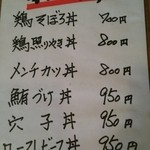 鶏そぼろ丼 900円
鶏照りやき丼 800円
メンチカツ丼 800円
鮪づけ丼 950円
穴子丼 950円
ローストビーフ丼 950円